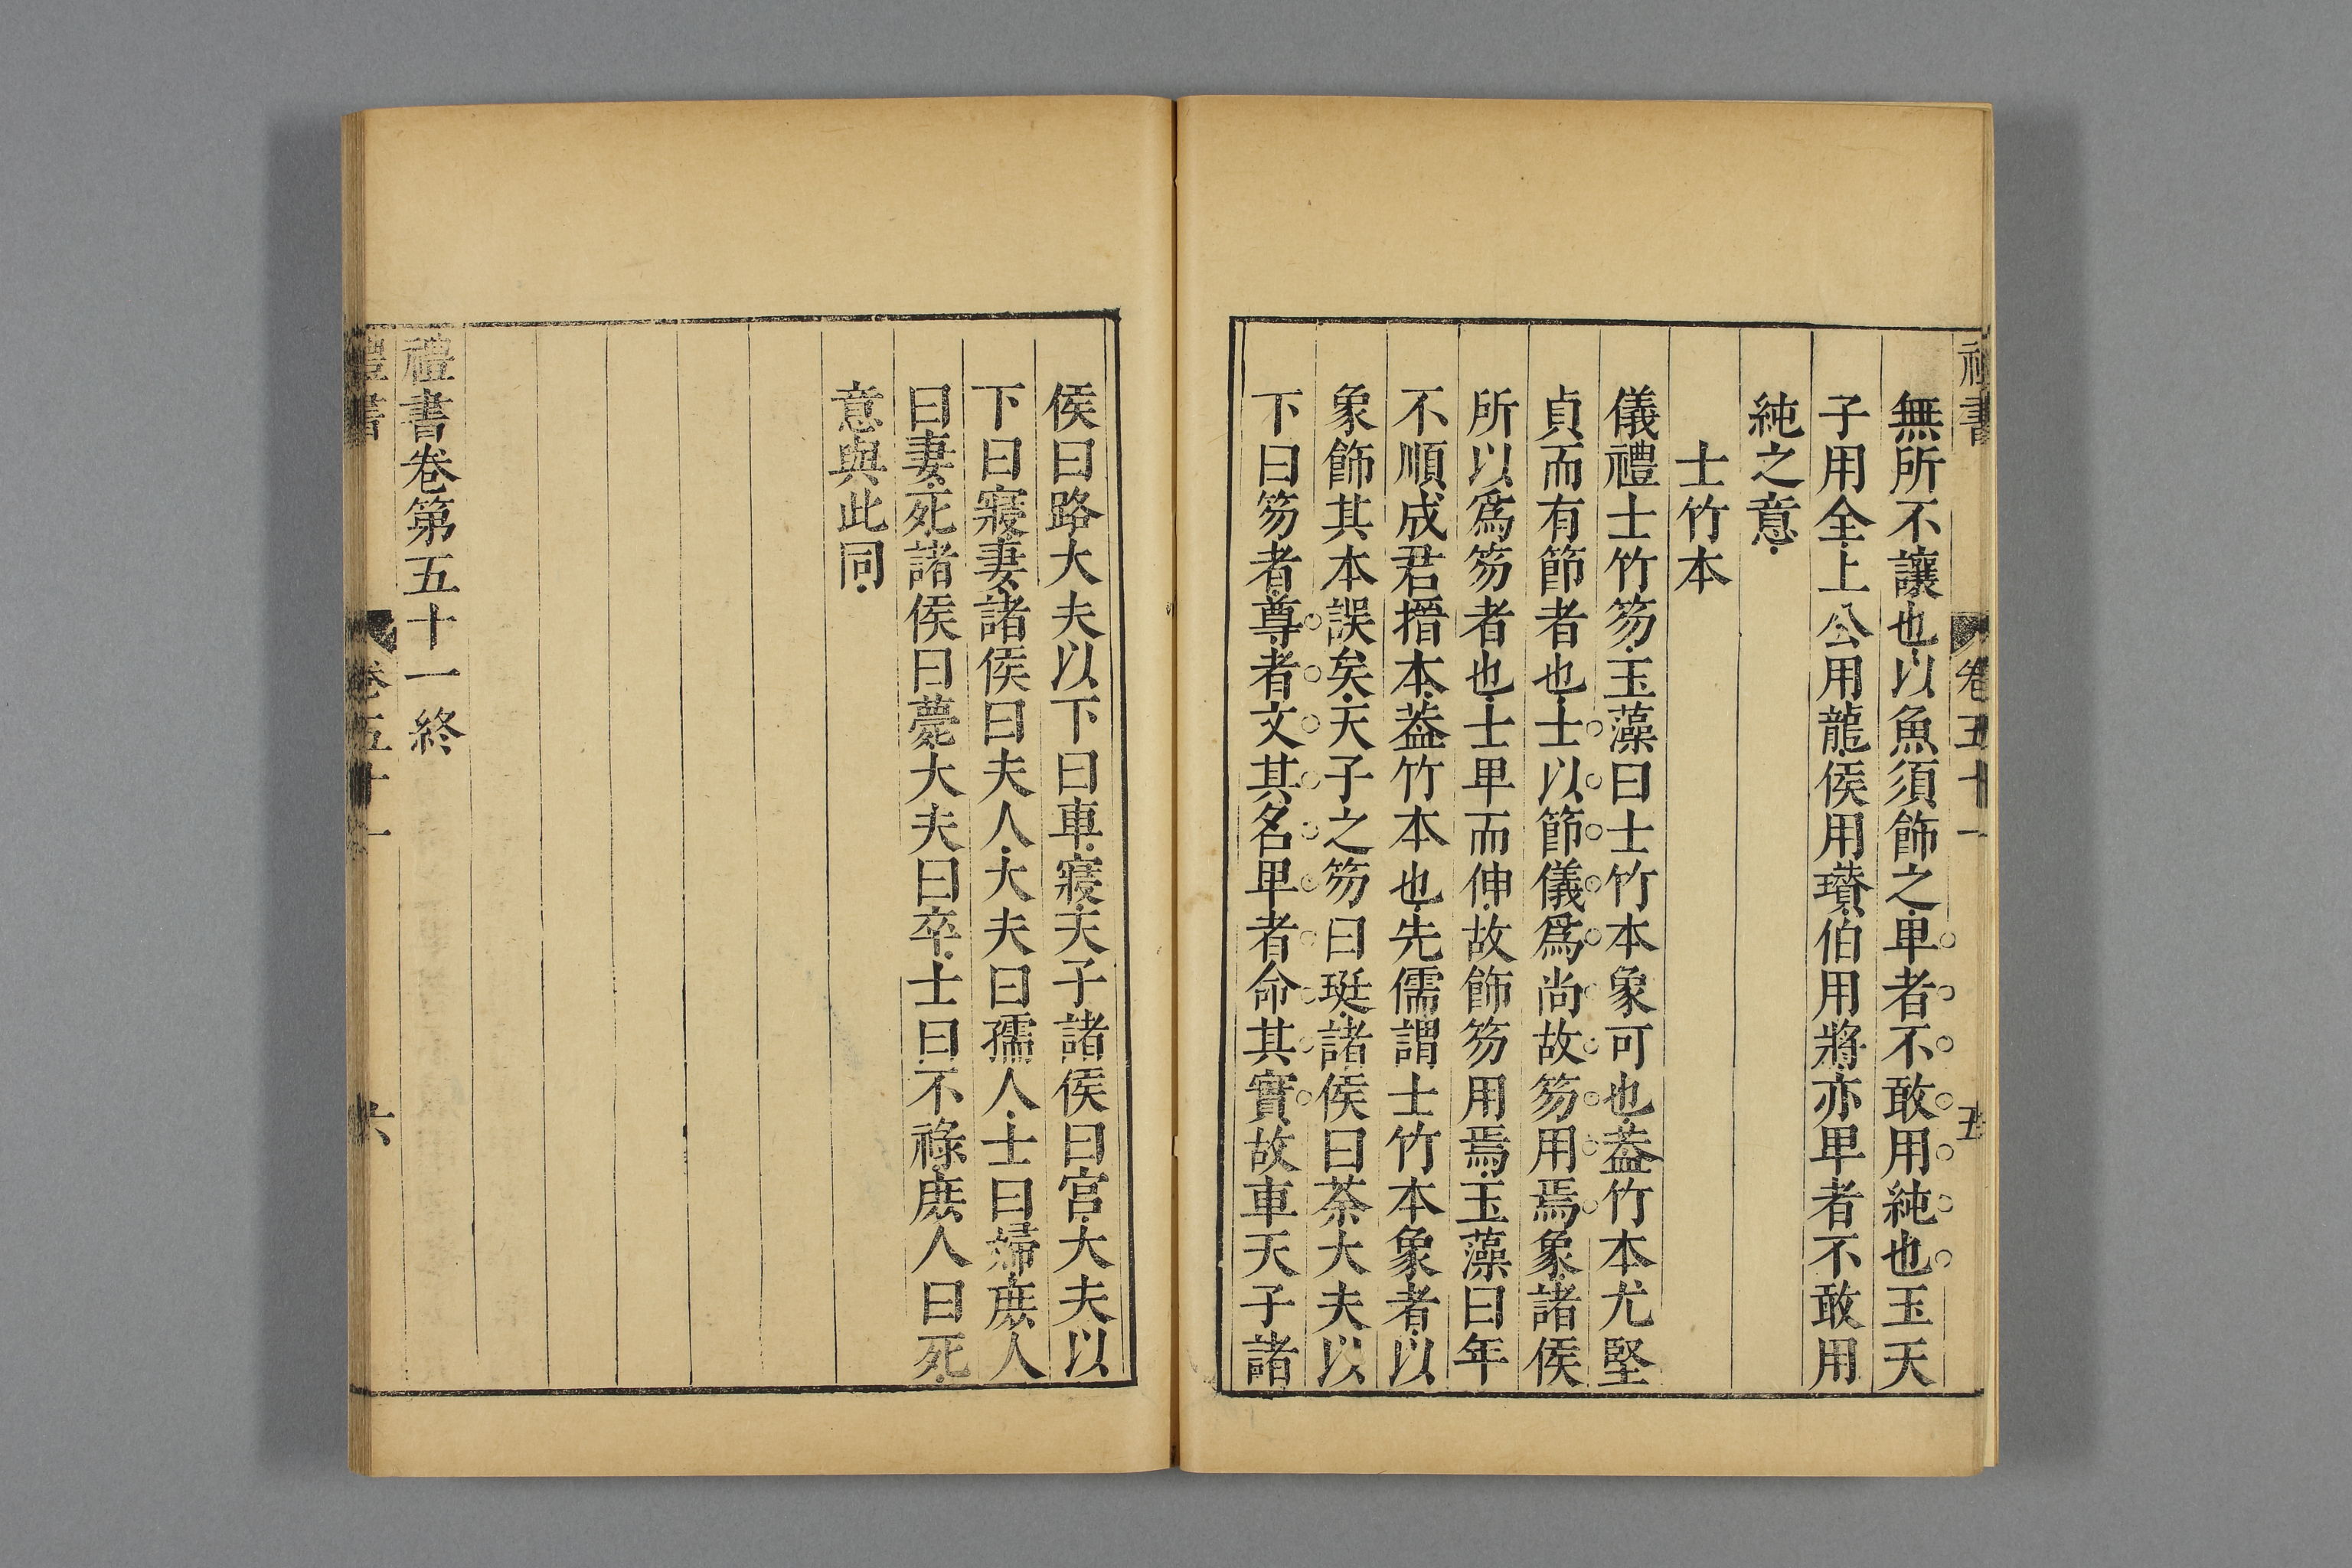 禮書
卷五十一
五
無所不讓也以魚須飾之卑者不敢用純也玉天
子用全上公用龍侯用瓚伯用將亦卑者不敢用
純之意
士竹本
儀禮士竹笏玉藻曰士竹本象可也葢竹本尤堅
貞而有節者也士以節儀爲尚故笏用焉象諸侯
所以爲笏者也士卑而伸故飾笏用焉玉藻曰年
不順成君搢本葢竹本也先儒謂士竹本象者以
象飾其本誤矣天子之笏曰珽諸侯曰荼大夫以
下曰笏者尊者文其名卑者命其實故車天子諸
侯曰路大夫以下曰車寢天子諸侯曰宮大夫以
下曰寢妻諸侯曰夫人大夫曰孺人士曰婦庻人
曰妻死諸侯曰薨大夫曰卒士曰不祿庻人曰死
意與此同
禮書卷第五十一終
禮書
卷五十一
六